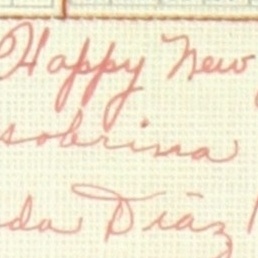 Happy New
sobrina
da Díaz